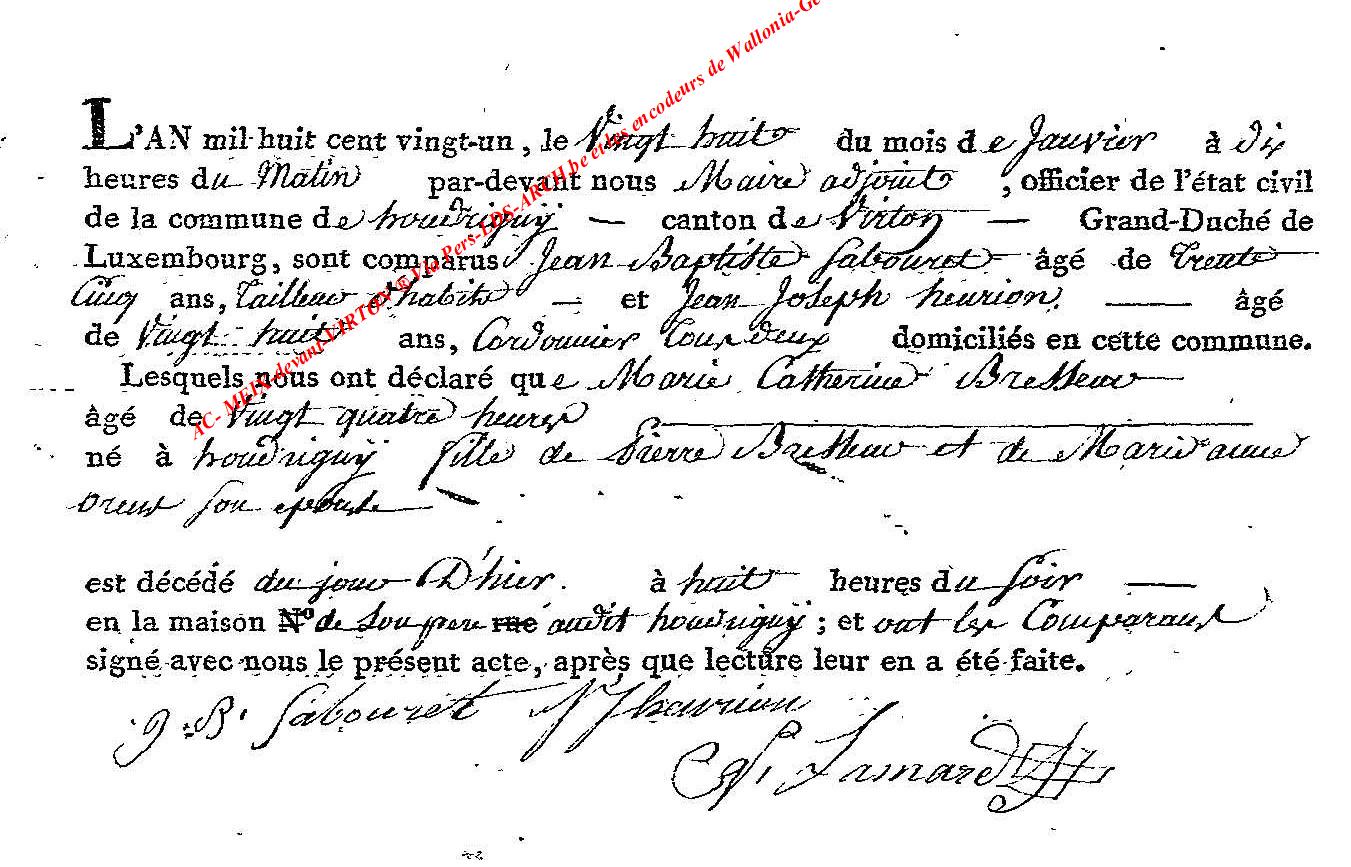 L'AN mil huit cent vingt-un, le Vingt huit du mois de Janvier à dix
heures du Matin par-devant nous Maire adjoint, officier de l'état civil
de la commune de houdriguÿ — canton de Virton — Grand-Duché de
Luxembourg, sont comparus Jean Baptiste Sabouret âgé de trente
Cinq ans, Tailleur d'habits — et Jean Joseph henrion. — âgé
de Vingt huit ans, Cordonnier tous deux domiciliés en cette commune.
Lesquels nous ont déclaré que Marie Catherine
âgé de Vingt quatre heures
né à houdriguÿ fille de Pierre et de Marie anne
son epouse
est décédé du jour D'hier. à huit heures du soir —
en la maison N.º de son pere rue audit houdriguÿ ; et ont les Comparants
signé avec nous le présent acte, après que lecture leur en a été faite.
J. B. Sabouret JJ henrion
Lamard
AC- MEIX devant VIRTON ® Via Pers-LDS-ARCH.be et les encodeurs de Wallonia-Ge